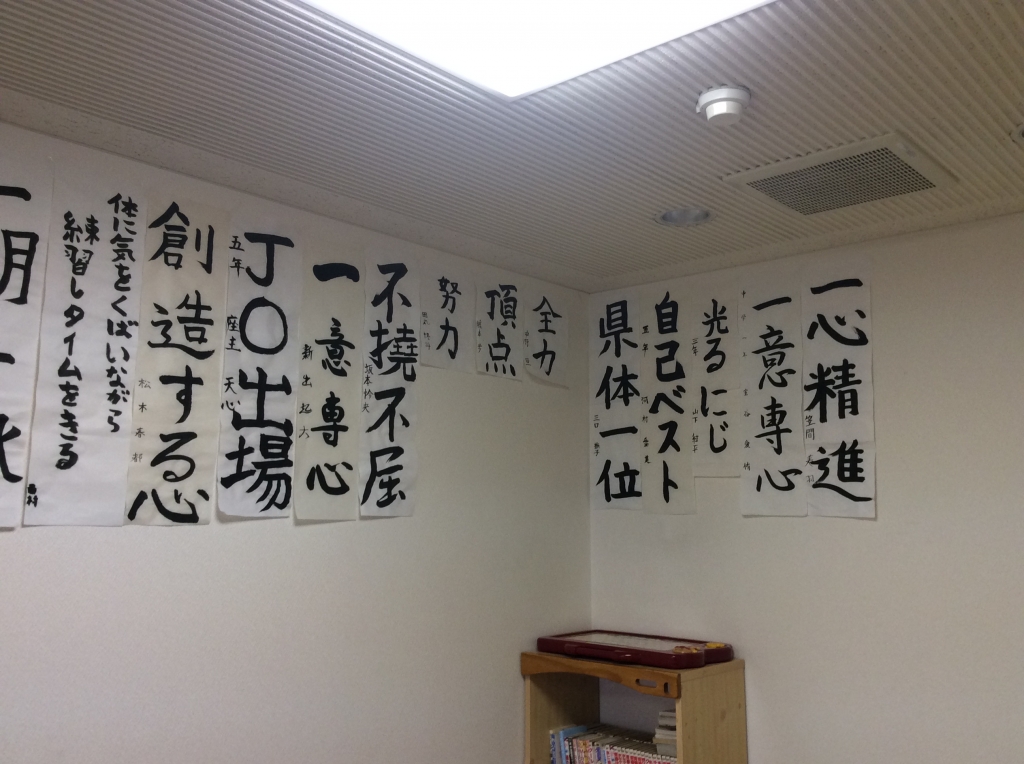 一心精進
笠間
一意専心
光るにじ
三年 山下
自己ベスト
五年
県体一位
全力
頂点
努力
不撓不屈
坂本
一意専心
新出
JO出場
五年 座主 天心
創造する心
松木
体に気をくばいながら
練習しタイムをきる